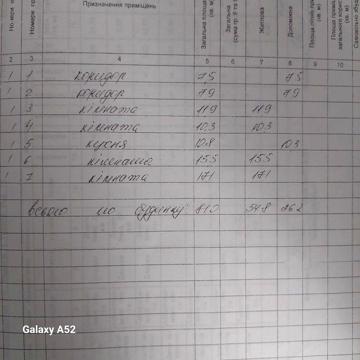 Призначення приміщень
Загальна площа (кв. м)
Загальна
Житлова
Допоміжна
2 3 4 5 6 7 8 9 10
1 1 коридор 7.5 7.5
1 2 коридор 7.9 7.9
1 3 кімната 11.9 11.9
1 4 кімната 10.3 10.3
1 5 кухня
1 6 кімната 15.5 15.5
1 7 кімната 17.1 17.1
всього по будинку 81.0 54.8 26.2
Galaxy A52